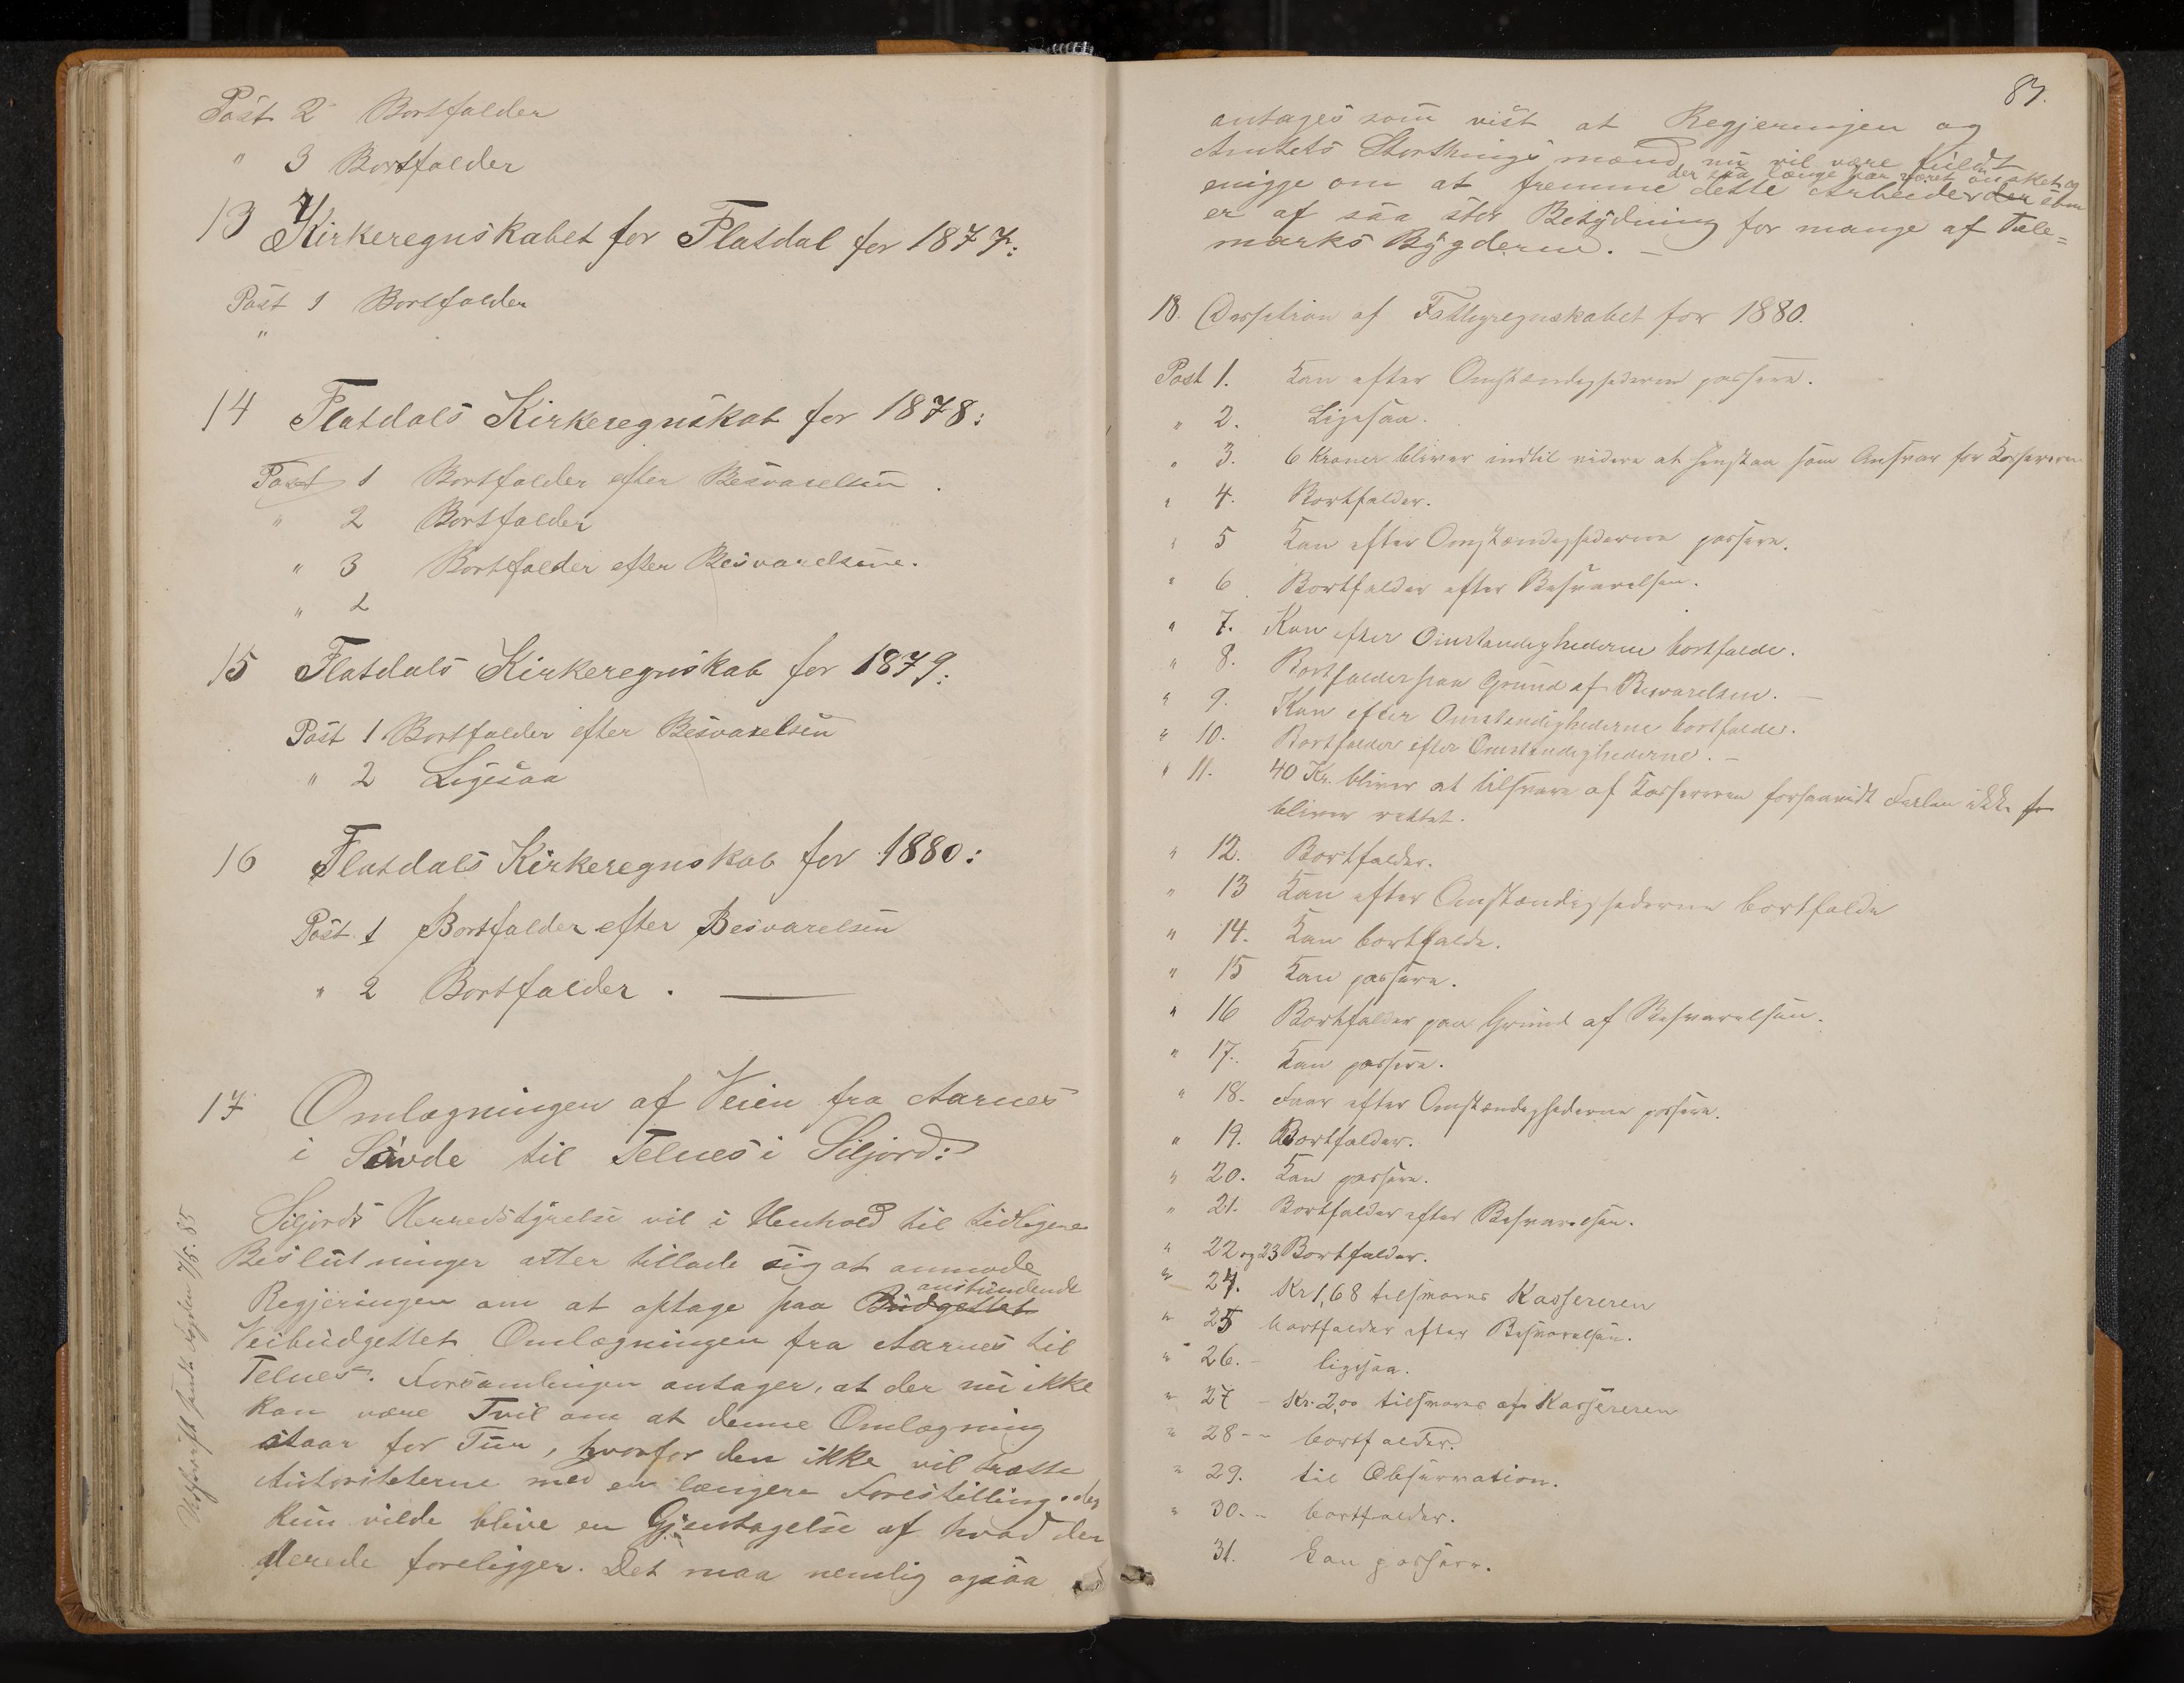 Post 2 Bortfalder
" 3 Bortfalder
13 Kirkeregnskabet for Flatdal for 1877:
Post 1 Bortfalder
"
14 Flatdals Kirkeregnskab for 1878:
Post 1 Bortfalder efter Besvarelsen.
" 2 Bortfalder
" 3 Bortfalder efter Besvarelsene.
" 2
15 Flatdals Kirkeregnskab for 1879:
Post 1 Bortfalder efter Besvarelsen
" 2 Ligesaa
16 Flatdals Kirkeregnskab for 1880:
Post 1 Bortfalder efter Besvarelsen
" 2 Bortfalder. —
17 Omlægningen af Veien fra Aarnes
i Saude til Telnes i Siljord:
Siljords Herredstyrelse vil i Henhold til tidligere
Beslutninger atter tillade sig at anmode
Regjeringen om at optage paa Budgettet anstundende
Veibudgettet Omlægningen fra Aarnes til
Telnes. Forsamlingen antager, at der nu ikke
kan være Tvil om at denne Omlægning
staar for Tur, hvorfor den ikke vil trætte
Autoriteterne med en længere Forestilling, der
kun vilde blive en Gjentagelse af hvad der
allerede foreligger. Det maa nemlig ogsaa
Udskrift sendt Fogden 7/5. 85
87.
antages som vist at Regjeringen og
Amtets Storthingsmænd, nu vil være fuldt
enigge om at fremme dette Arbeide der som
der saa længe har været ønsket og
er af saa stor Betydning for mange af Tele=
marks Bygderne. —
18. Decision af Fattigregnskabet for 1880.
Post 1. Kan efter Omstændighederne passere.
" 2. Ligesaa.
" 3. 6 Kroner bliver indtil videre at henstaa som Ansvar for Kassereren
" 4. Bortfalder.
" 5 Kan efter Omstændighederne passere.
" 6. Bortfalder efter Besvarelsen.
" 7. Kan efter Omstendighederne bortfalde.
" 8. Bortfalder paa Grund af Besvarelsen. —
" 9. Kan efter Omstendighederne bortfalde.
" 10. Bortfalder efter Omstendighederne. —
" 11. 40 Kr. bliver at tilsvare af Kassereren forsaavidt Feilen ikke
bliver rettet.
" 12. Bortfalder.
" 13 Kan efter Omstændighederne bortfalde
" 14. Kan bortfalde.
" 15 Kan passere.
" 16 Bortfalder paa Grund af Besvarelsen.
" 17. Kan passere.
" 18. Faar efter Omstændighederne passere.
" 19. Bortfalder.
" 20. Kan passere.
" 21. Bortfalder efter Besvarelsen.
" 22 og 23 Bortfalder.
" 24. Kr 1,68 tilsvares Kassereren
" 25 bortfalder efter Besvarelsen.
" 26. - ligesaa.
" 27 - Kr. 2,00 tilsvares af Kassereren
" 28 -- bortfalder.
" 29. til Observation.
" 30. -- bortfalder.
31. Kan passere.